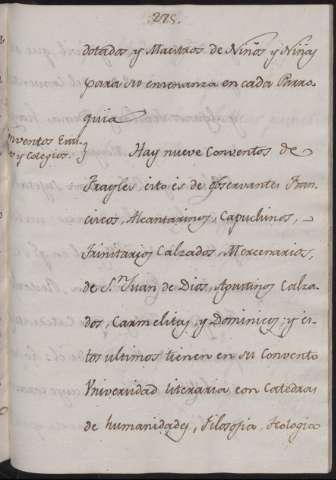 275.
dotados, y Maestros de Niños y Niñas
para su enseñanza en cada Parro-
quia
nventos Ers
s y Colegios.} Hay nueve Conventos de
Frayles esto es de observantes Fran-
ciscos, Alcantarinos, Capuchinos,
Trinitarios Calzados, Mercenarios,
de Sn. Juan de Dios, Agustinos Calza-
dos, Carmelitas, y Dominicos, y es-
tos ultimos tienen en su Convento
Vniversidad literaria con Catedras
de humanidades, Filosofia, teologica